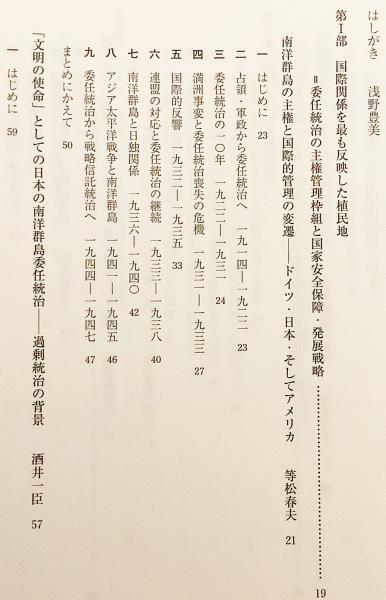 はしがき 浅野豊美
第Ⅰ部 国際関係を最も反映した植民地
＝委任統治の主権管理枠組と国家安全保障・発展戦略………………………… 19
南洋群島の主権と国際的管理の変遷――ドイツ・日本・そしてアメリカ 等松春夫 21
一 はじめに 23
二 占領・軍政から委任統治へ 一九一四―一九二二 23
三 委任統治の一〇年 一九二二―一九三一 24
四 満洲事変と委任統治喪失の危機 一九三一―一九三三 27
五 国際的反響 一九三二―一九三五 33
六 連盟の対応と委任統治の継続 一九三三―一九三八 40
七 南洋群島と日独関係 一九三六―一九四〇 42
八 アジア太平洋戦争と南洋群島 一九四一―一九四五 46
九 委任統治から戦略信託統治へ 一九四四―一九四七 47
まとめにかえて 50
「文明の使命」としての日本の南洋群島委任統治――過剰統治の背景 酒井一臣 57
一 はじめに 59